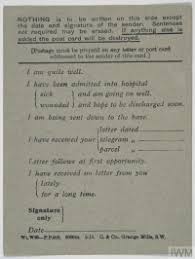 NOTHING is to be written on this side except
the date and signature of the sender. Sentences
not required may be erased. If anything else is
added the post card will be destroyed.
[Postage must be prepaid on any letter or post card
addressed to the sender of this card.]
I am quite well.
I have been admitted into hospital
sick and am going on well.
wounded and hope to be discharged soon.
I am being sent down to the base.
letter dated
I have received your telegram „
parcel „
Letter follows at first opportunity.
I have received no letter from you
lately
for a long time.
Signature
only
Date
& Co., Grange Mills, S.W.
IWM